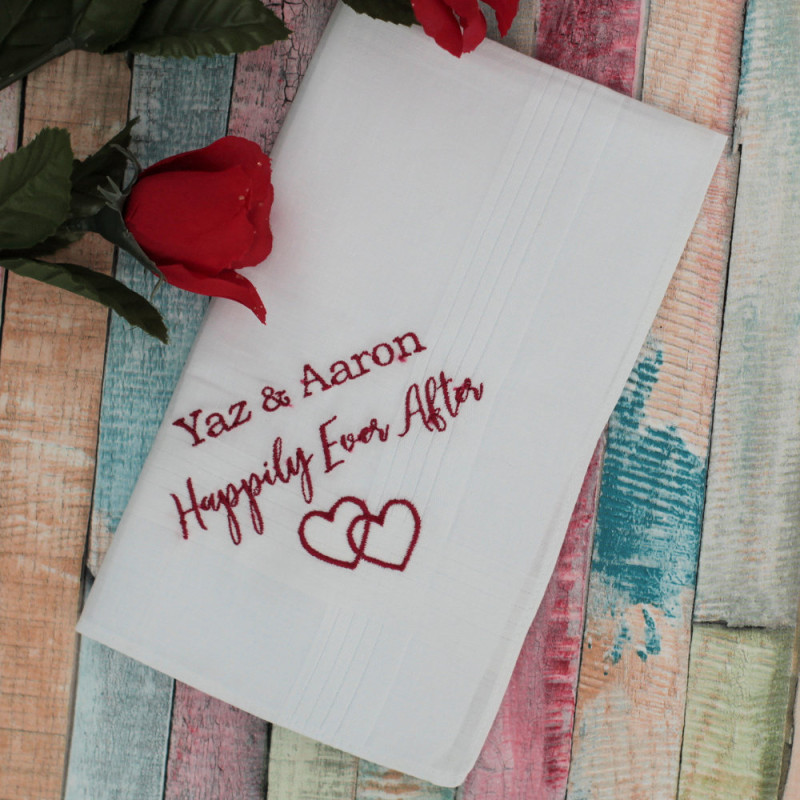 Yaz & Aaron
Happily Ever After